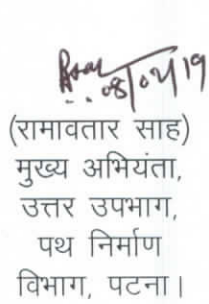 08/04/19
(रामावतार साह)
मुख्य अभियंता,
उत्तर उपभाग,
पथ निर्माण
विभाग, पटना।